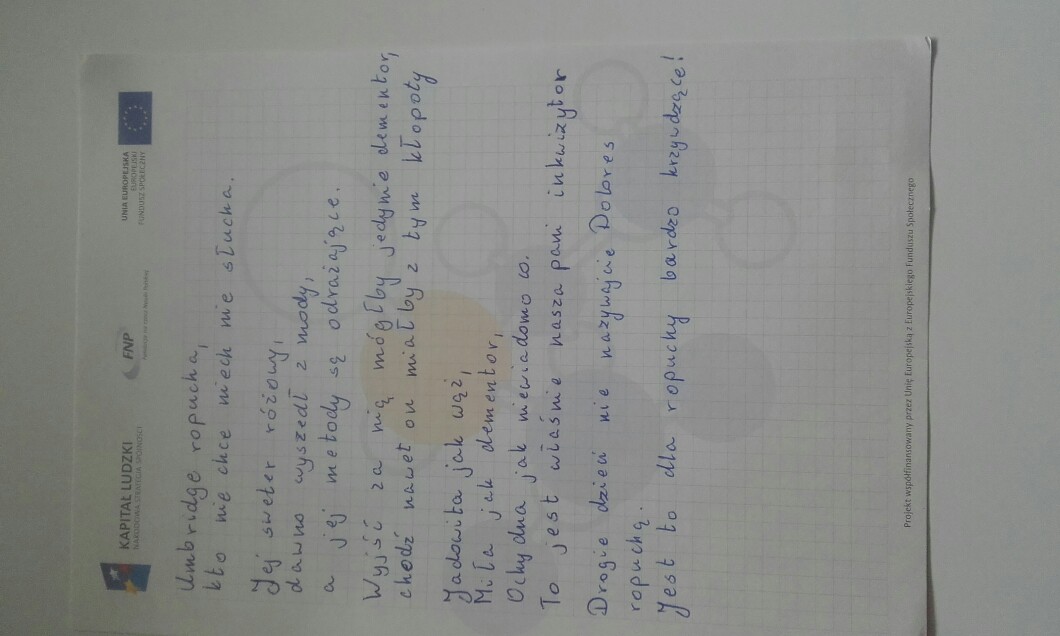 KAPITAŁ LUDZKI
NARODOWA STRATEGIA SPÓJNOŚCI
FNP
UNIA EUROPEJSKA
EUROPEJSKI
FUNDUSZ SPOŁECZNY
Umbridge ropucha,
kto nie chce niech nie słucha.
Jej sweter różowy,
dawno wyszedł z mody,
a jej metody są odrażające.
Wyjść za nią mógłby jedynie dementor,
chodź nawet on miałby z tym kłopoty
Jadowita jak wąż,
Miła jak dementor,
Ochydna jak niewiadomo co.
To jest właśnie nasza pani inkwizytor
Drogie dzieci nie nazywajcie Dolores
ropuchą.
Jest to dla ropuchy bardzo krzywdzące!
Projekt współfinansowany przez Unię Europejską z Europejskiego Funduszu Społecznego